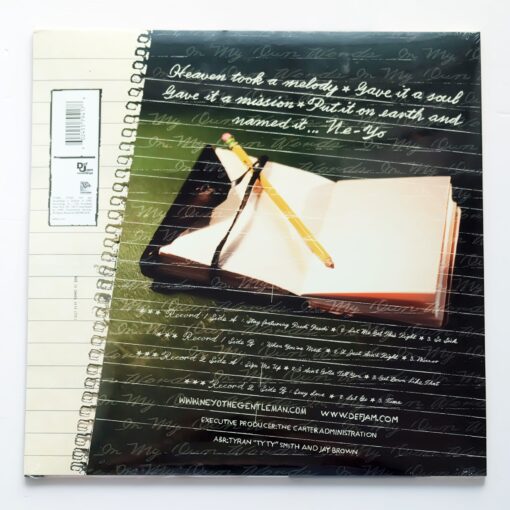 In My Own Words
Heaven took a melody * Gave it a soul
Gave it a mission * Put it on earth and
named it... Ne-Yo
Def Jam
*** Record 1 Side A : Stay featuring Peedi Peedi * 2. Let Me Get This Right * 3. So Sick
*** Record 1 Side B : When You're Mad * 2. It Just Ain't Right * 3. Mirror
*** Record 2 Side A : Sign Me Up * 2. I Ain't Gotta Tell You * 3. Get Down Like That
*** Record 2 Side B : Sexy Love * 2. Let Go * 3. Time
WWW.NEYOTHEGENTLEMAN.COM WWW.DEFJAM.COM
EXECUTIVE PRODUCER: THE CARTER ADMINISTRATION
A&R: TYRAN "TY TY" SMITH AND JAY BROWN